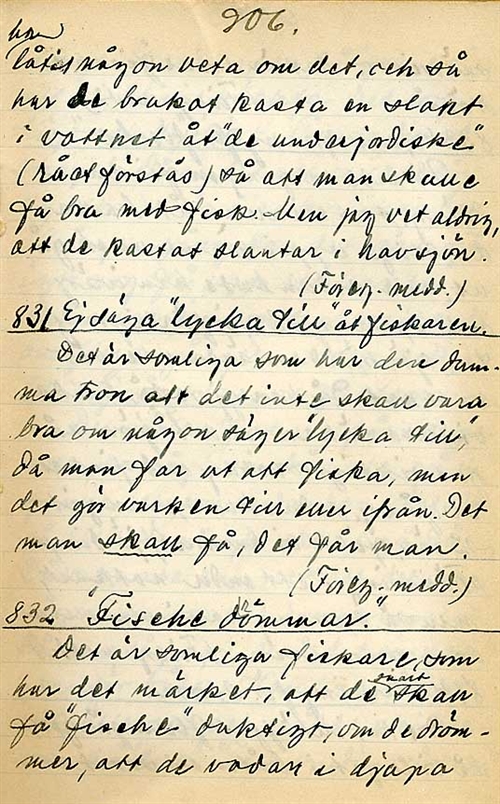 206.
han
låtit någon veta om det, och så
har de brukat kasta en slant
i vattnet åt "de underjordiske"
(rået förstås) så att man skulle
få bra med fisk. Men jag vet aldrig,
att de kastat slantar i havsjön.
(Föreg. medd.)
831 Ej säga "lycka till" åt fiskaren.
Det är somliga som har den dum-
ma tron att det inte skall vara
bra om någon säger "lycka till",
då man far ut att fiska, men
det gör varken till eller ifrån. Det
man skall få, det får man.
(Föreg. medd.)
832 "Fische drömmar."
Det är somliga fiskare, som
har det märket, att de snart skall
få "fische" duktigt, om de dröm-
mer, att de vadar i djupa